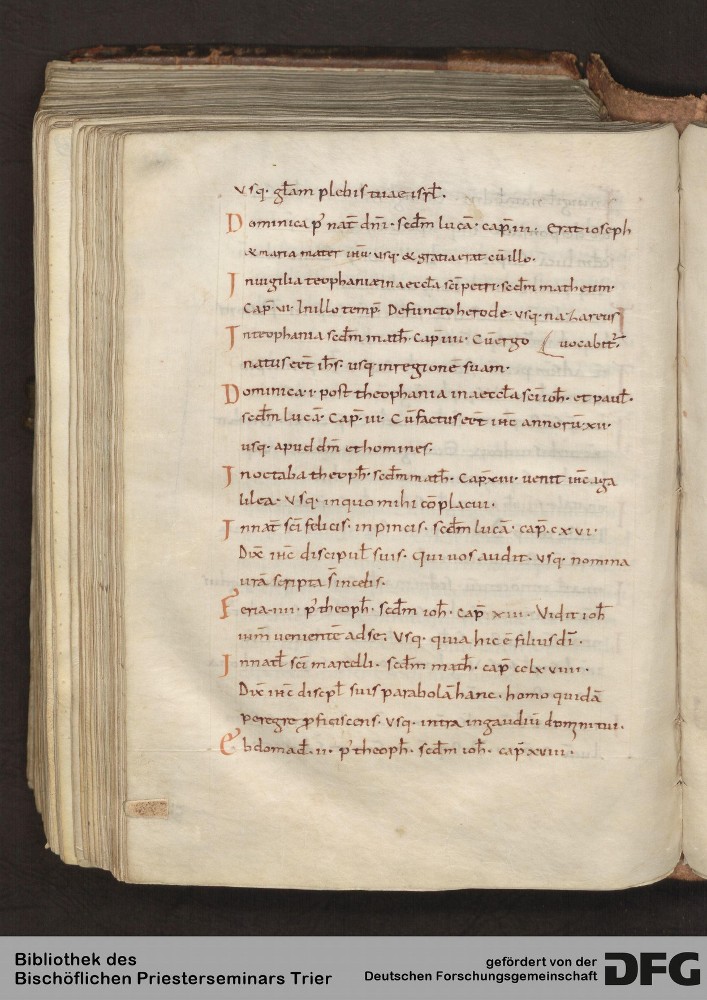 Vsq· gl̅am plebis tuae isrl̅.
Dominica p' nat̅ dn̅i· scd̅m lucā· cap̅ III· Erat ioseph
& maria mater ihu̅ usq· & gratia erat cū illo·
In uigilia teophaniae in aeccl̅a sc̅i petri· scd̅m matheum·
Cap̅· VI· In illo temp̅· Defuncto herode· usq· nazareus
In teophania scd̅m math̅· Cap̅ III· Cū ergo uocabit̅·
natus eēt ih̅s· usq· in regionē suam·
Dominica· I· post theophania in aeccl̅a sc̅i ioh̅· et paul̅·
scd̅m lucā· Cap̅· III· Cū factus eēt ih̅c annorū· XII·
usq· apud dm̅ et homines·
In octaba theoph̅· scd̅m math̅· Cap̅ XIII· uenit ih̅c a ga
lilea· Vsq· in quo mihi cōplacui·
In nat̅ sc̅i felicis· in pincis· scd̅m lucā· cap̅· CXVI·
Dix̅ ih̅c discipul̅ suis· Qui uos audit· usq· nomina
ur̅a scripta s̅ in celis·
Feria· IIII· p' theoph̅· scd̅m ioh̅· cap̅ XIII· Vidit ioh̅
ih̅m uenientē ad se· Vsq· quia hic ē filius di̅·
In natl̅ sc̅i marcelli· scd̅m math̅· cap̅ CCLXVIIII·
Dix̅ ih̅c discpl̅ suis parabolā hanc· homo quidā
peregre ꝓficiscens· Vsq· intra in gaudiū domni tui·
Ebdomad̅· II· p' theoph̅· scd̅m ioh̅· cap̅ XVIII·
Bibliothek des
Bischöflichen Priesterseminars Trier
gefördert von der
Deutschen Forschungsgemeinschaft
DFG